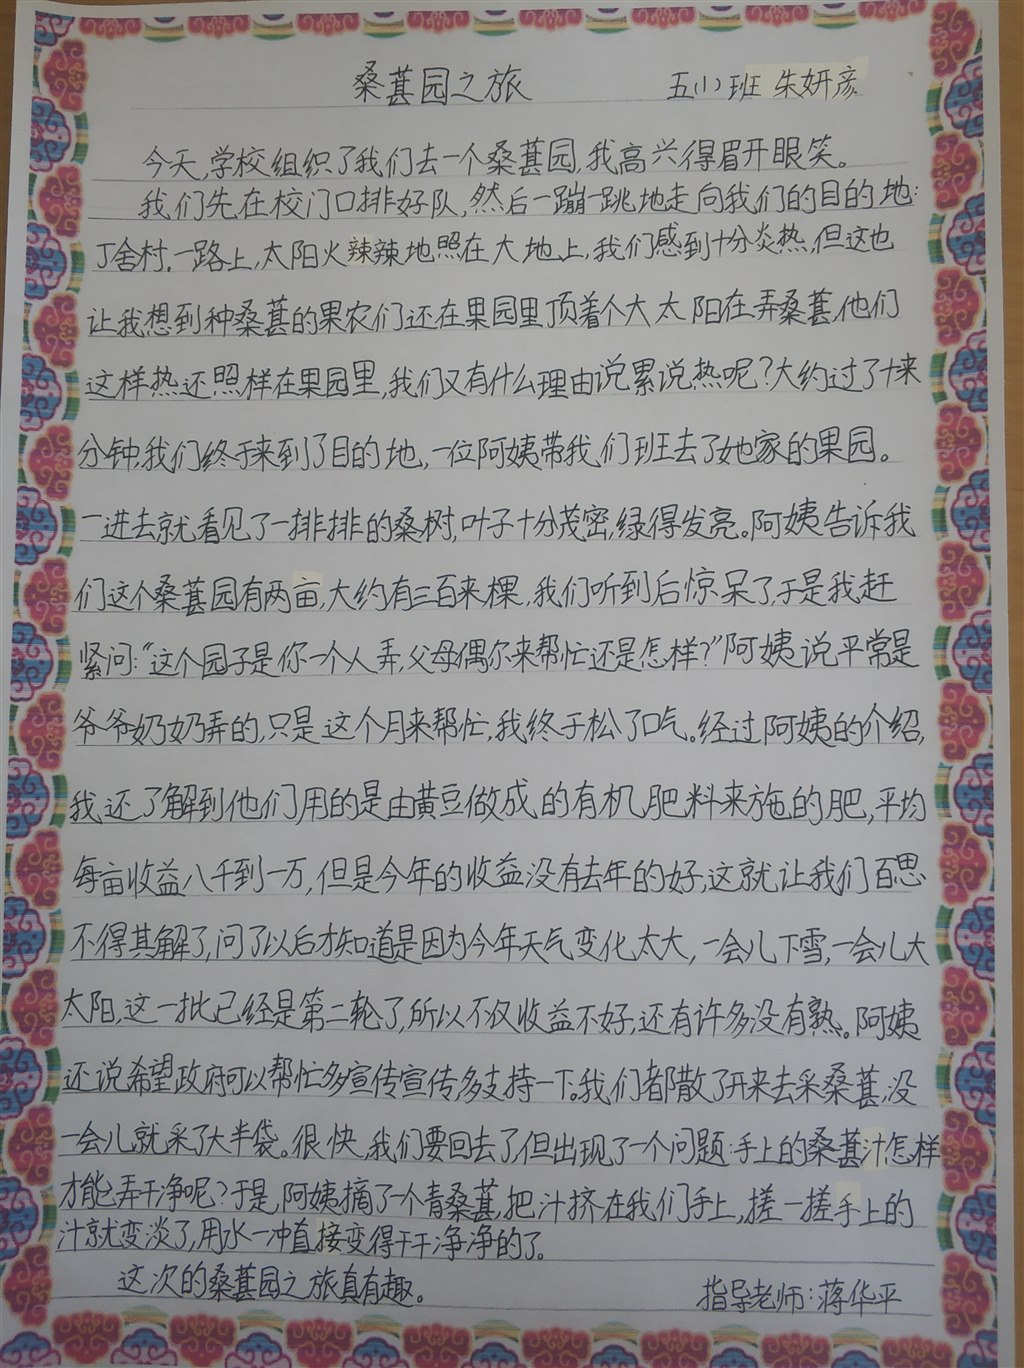 桑葚园之旅 五(1)班 朱妍彦
今天,学校组织了我们去一个桑葚园,我高兴得眉开眼笑。
我们先在校门口排好队,然后一蹦一跳地走向我们的目的地:
丁舍村。一路上,太阳火辣辣地照在大地上,我们感到十分炎热,但这也
让我想到种桑葚的果农们还在果园里顶着个大太阳在弄桑葚,他们
这样热还照样在果园里,我们又有什么理由说累说热呢?大约过了十来
分钟,我们终于来到了目的地,一位阿姨带我们班去了她家的果园。
一进去就看见了一排排的桑树,叶子十分茂密,绿得发亮。阿姨告诉我
们这个桑葚园有两亩,大约有三百来棵,我们听到后惊呆了,于是我赶
紧问:“这个园子是你一个人弄,父母偶尔来帮忙还是怎样?”阿姨说平常是
爷爷奶奶弄的,只是这个月来帮忙,我终于松了口气。经过阿姨的介绍,
我还了解到他们用的是由黄豆做成的有机肥料来施的肥,平均
每亩收益八千到一万,但是今年的收益没有去年的好,这就让我们百思
不得其解了,问了以后才知道是因为今年天气变化太大,一会儿下雪,一会儿大
太阳,这一批已经是第二轮了,所以不仅收益不好,还有许多没有熟。阿姨
还说希望政府可以帮忙多宣传宣传,多支持一下。我们都散了开来去采桑葚,没
一会儿就采了大半袋。很快,我们要回去了,但出现了一个问题:手上的桑葚汁怎样
才能弄干净呢?于是,阿姨摘了一个青桑葚,把汁挤在我们手上,搓一搓手上的
汁就变淡了,用水一冲直接变得干干净净的了。
这次的桑葚园之旅真有趣。 指导老师:蒋华平